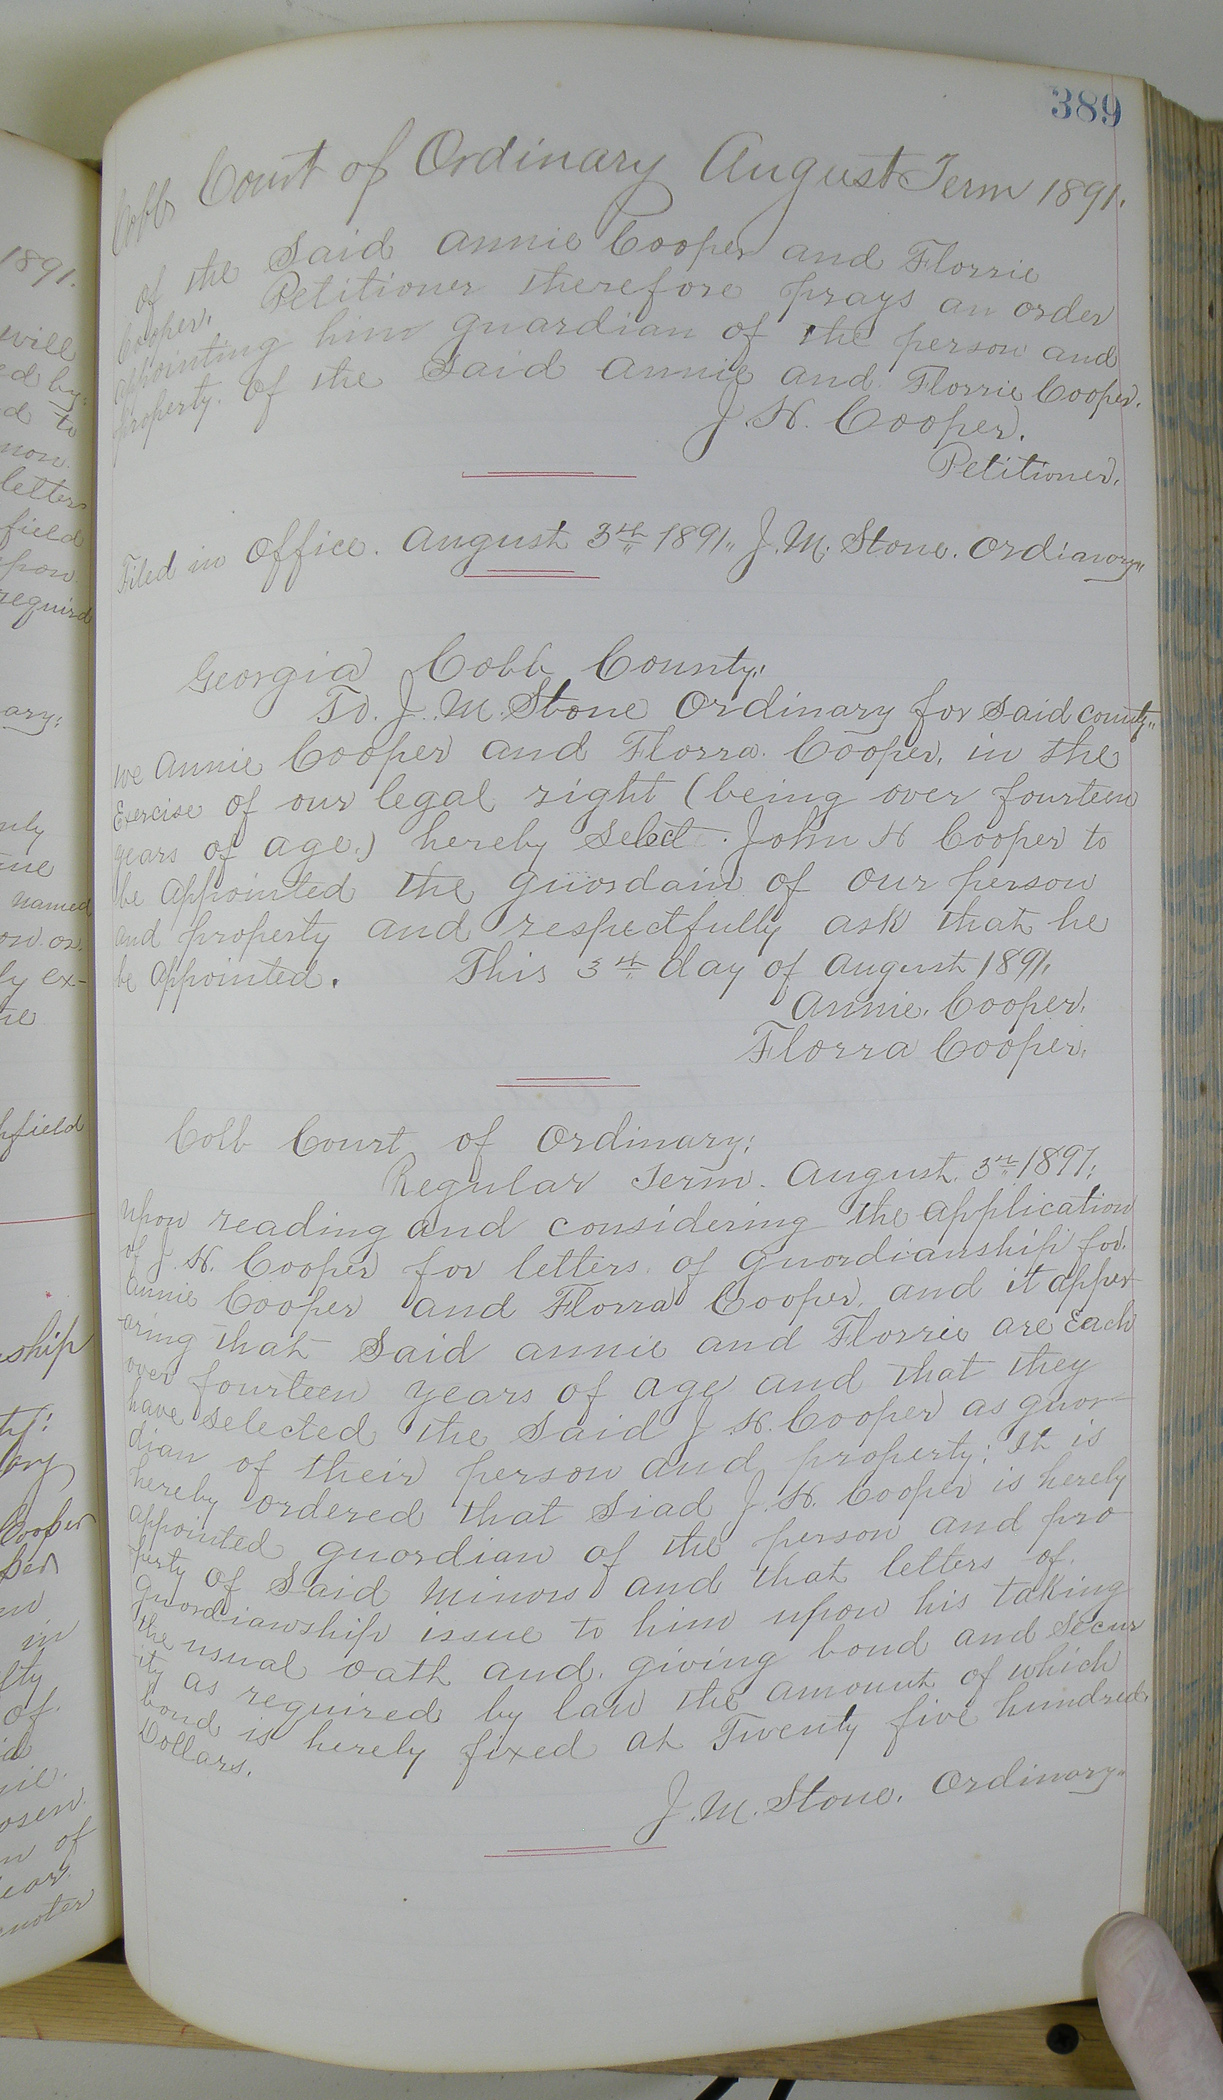 389
Cobb Court of Ordinary August Term 1891.
of the Said Annie Cooper and Florrie
Cooper. Petitioner therefore prays an order
appointing him guardian of the person and
property. of the Said Annie and Florrie Cooper.
J. H. Cooper.
Petitioner.
Filed in Office. August 3rd 1891. J. M. Stone. Ordianory
Georgia Cobb County.
To. J. M. Stone Ordinary for Said county.
we Annie Cooper and Florra Cooper, in the
Exercise of our legal right (being over fourteen
years of age.) hereby Select John H Cooper to
be Appointed the guordain of our person
and property and respectfully ask that he
be Appointed. This 3rd day of August 1891.
Annie. Cooper.
Florra Cooper.
Cobb Court of Ordinary:
Regular Term. August. 3rd 1891.
upon reading and considering the application
of J. H. Cooper for letters of guordianship for
Annie Cooper and Florra Cooper, and it apper
aring that Said Annie and Florrie are Each
over fourteen years of age and that they
have selected the Said J. H. Cooper as guor-
dian of their person and property: It is
hereby ordered that Siad J. H. Cooper is herely
appointed guordian of the person and pro
perty of Said Minors and that letters of
guordianship issue to him upon his taking
the usual oath and. giving bond and Secur
ity as required by law the amount of which
bond is herely fixed at Twenty five hundred
Dollars.
J. M. Stone. Ordinary
1891.
will
letters
field
upon
requird
named
ship
Cooper
in
of